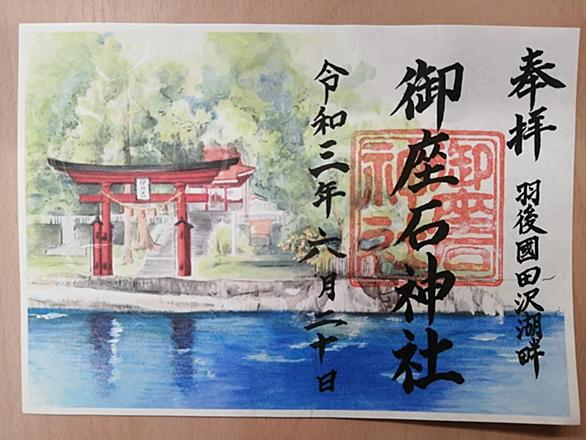 奉拝
羽後國田沢湖畔
御座石神社
御座石神社
令和三年六月二十日